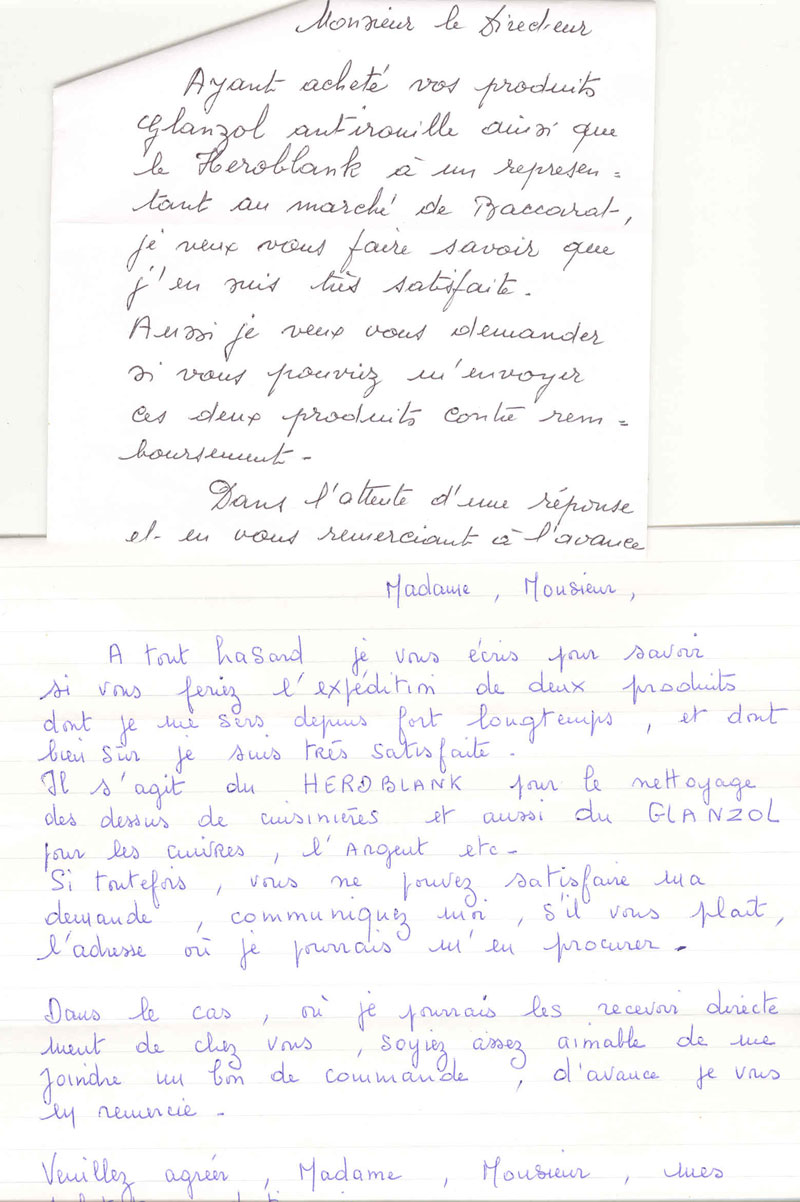 Monsieur le Directeur
Ayant acheté vos produits
Glanzol antirouille ainsi que
le Heroblank à un represen=
tant au marché de Baccarat,
je veux vous faire savoir que
j'en suis très satisfaite.
Aussi je veux vous demander
si vous pouviez m'envoyer
ces deux produits contre rem=
boursement-
Dans l'attente d'une réponse
et en vous remerciant à l'avance
Madame, Monsieur,
A tout hasard je vous écris pour savoir
si vous feriez l'expédition de deux produits
dont je me sers depuis fort longtemps, et dont
bien sûr je suis très satisfaite.
Il s'agit du HEROBLANK pour le nettoyage
des dessus de cuisinières et aussi du GLANZOL
pour les cuivres, l'Argent etc-
Si toutefois, vous ne pouvez satisfaire ma
demande, communiquez moi, s'il vous plait,
l'adresse où je pourrais m'en procurer.
Dans le cas, où je pourrais les recevoir directe
ment de chez vous, soyiez assez aimable de me
joindre un bon de commande, d'avance je vous
en remercie-
Veuillez agréer, Madame, Monsieur, mes